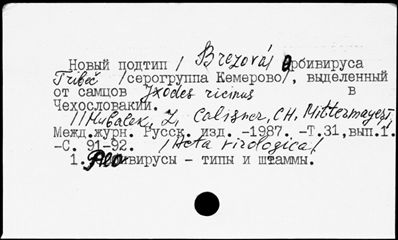 Новый подтип / Brezová/ Арбивируса
Tribeč /серогруппа Кемерово/, выделенный
от самцов Ixódes ricinus в
Чехословакии.
//Hubalek, Z, Calisher, CH, Mittermayer T,
Межд.журн. Русск. изд. -1987. -Т.31,вып.1.
-С. 91-92. /Acta virological
1. Арбивирусы - типы и штаммы.